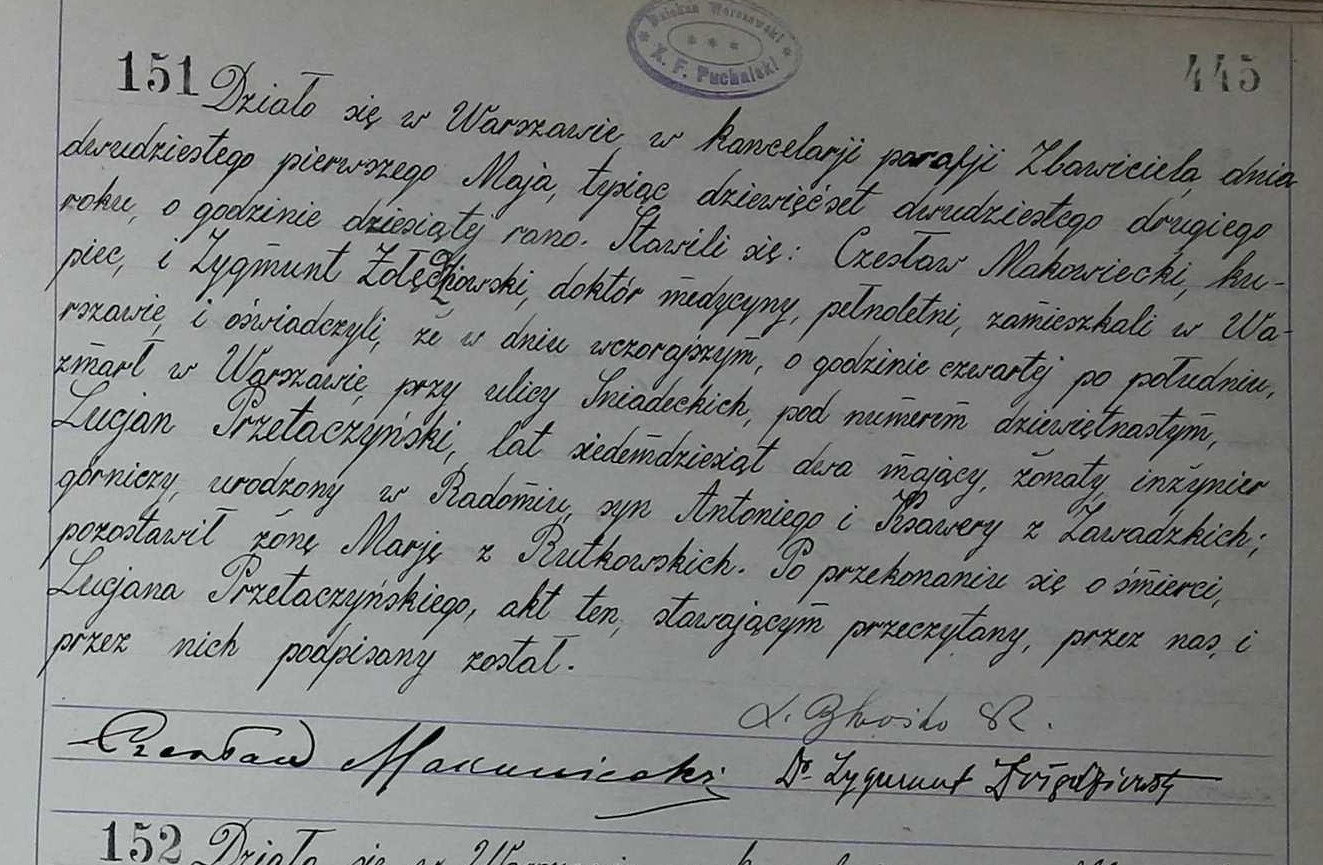 Dziekan Warszawski
X. F. Puchalski
151 445
Działo się w Warszawie, w kancelarji parafji Zbawiciela, dnia
dwudziestego pierwszego Maja, tysiąc dziewięćset dwudziestego drugiego
roku, o godzinie dziesiątej rano. Stawili się: Czesław Makowiecki, ku-
piec, i Zygmunt doktór medycyny, pełnoletni, zamieszkali w Wa-
rszawie, i oświadczyli, że w dniu wczorajszym, o godzinie czwartej po południu,
zmarł w Warszawie, przy ulicy Śniadeckich, pod numerem dziewiętnastym,
Lucjan Przetaczyński, lat siedemdziesiąt dwa mający, żonaty, inżynier
górniczy, urodzony w Radomiu, syn Antoniego i Ksawery z Zawadzkich;
pozostawił żonę Marję z Rutkowskich. Po przekonaniu się o śmierci,
Lucjana Przetaczyńskiego, akt ten, stawającym przeczytany, przez nas, i
przez nich podpisany został.
Czesław Makowiecki Dr. Zygmunt
152 Działo się w